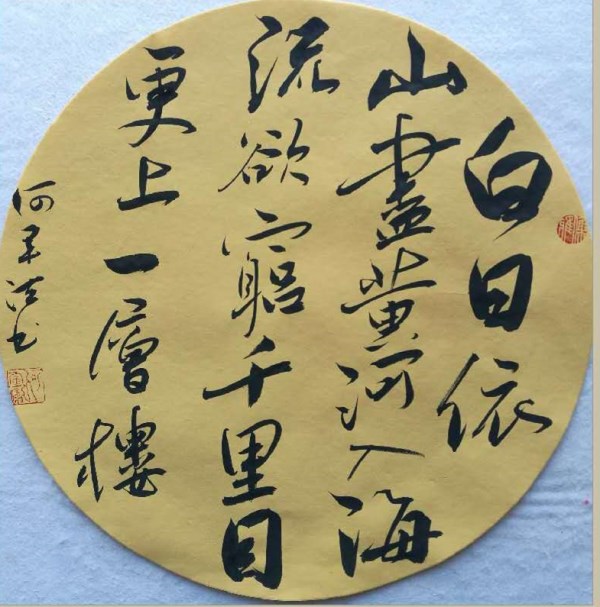 白日依
山盡黄河入海
流欲窮千里目
更上一層樓